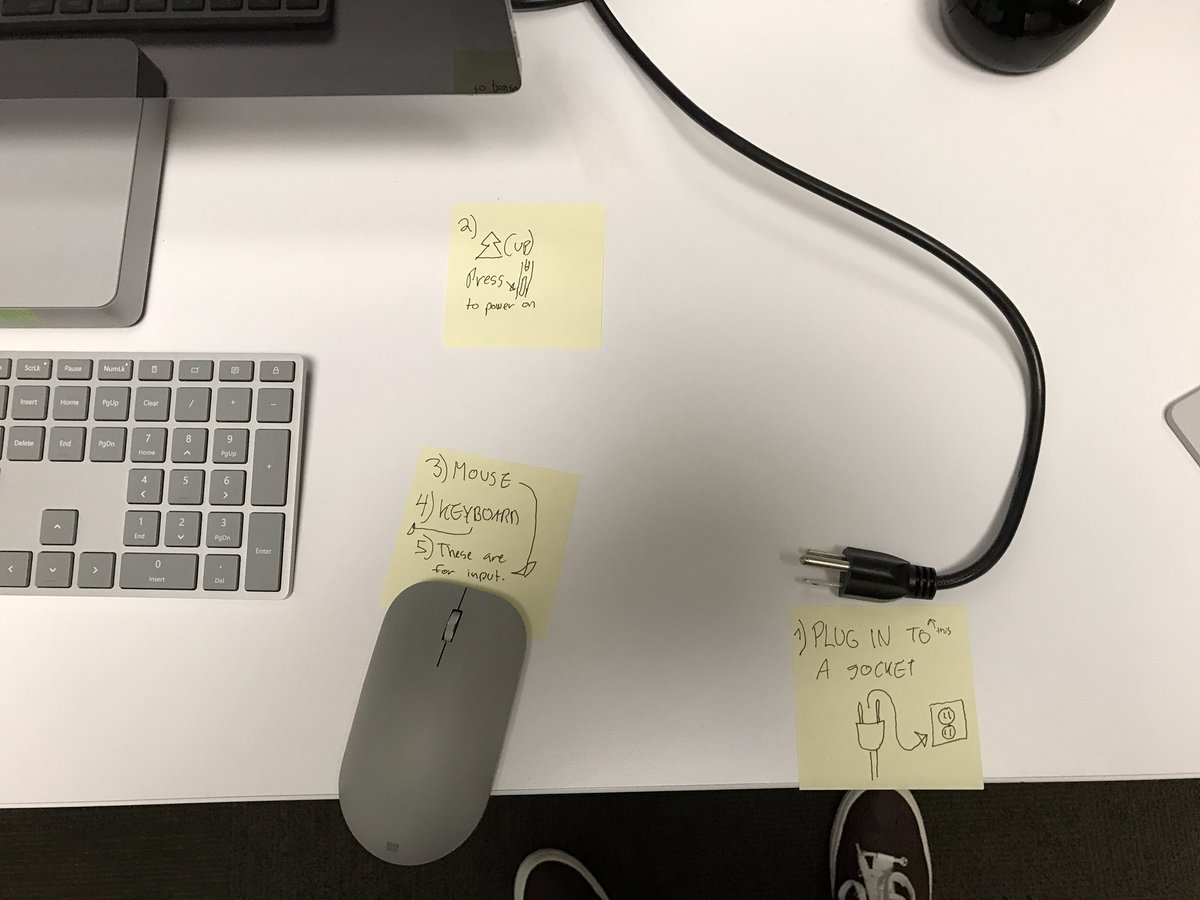 to power
2)
(UP)
Press
to power on
ScrLk
Pause
NumLk
Insert
Home
PgUp
Clear
/
*
-
Delete
End
PgDn
7
Home
8
9
PgUp
+
4
5
6
1
End
2
3
PgDn
Enter
0
Insert
.
Del
3) MOUSE
4) KEYBOARD
5) These are
for input.
1) PLUG IN TO this
A SOCKET